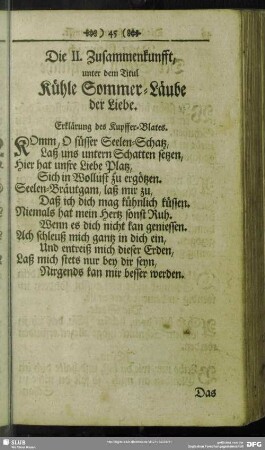 ) 45 (
Die II. Zusammenkunfft,
unter dem Titul
Kühle Sommer-Läube
der Liebe.
Erklärung des Kupffer-Blates.
KOmm, O süsser Seelen-Schatz,
Laß uns untern Schatten setzen,
Hier hat unsre Liebe Platz,
Sich in Wollust zu ergötzen.
Seelen-Bräutgam, laß mir zu,
Daß ich dich mag kühnlich küssen.
Niemals hat mein Hertz sonst Ruh.
Wenn es dich nicht kan geniessen.
Ach schleuß mich gantz in dich ein,
Und entreiß mich dieser Erden,
Laß mich stets nur bey dir seyn,
Nirgends kan mir besser werden.
Das
SLUB
DFG